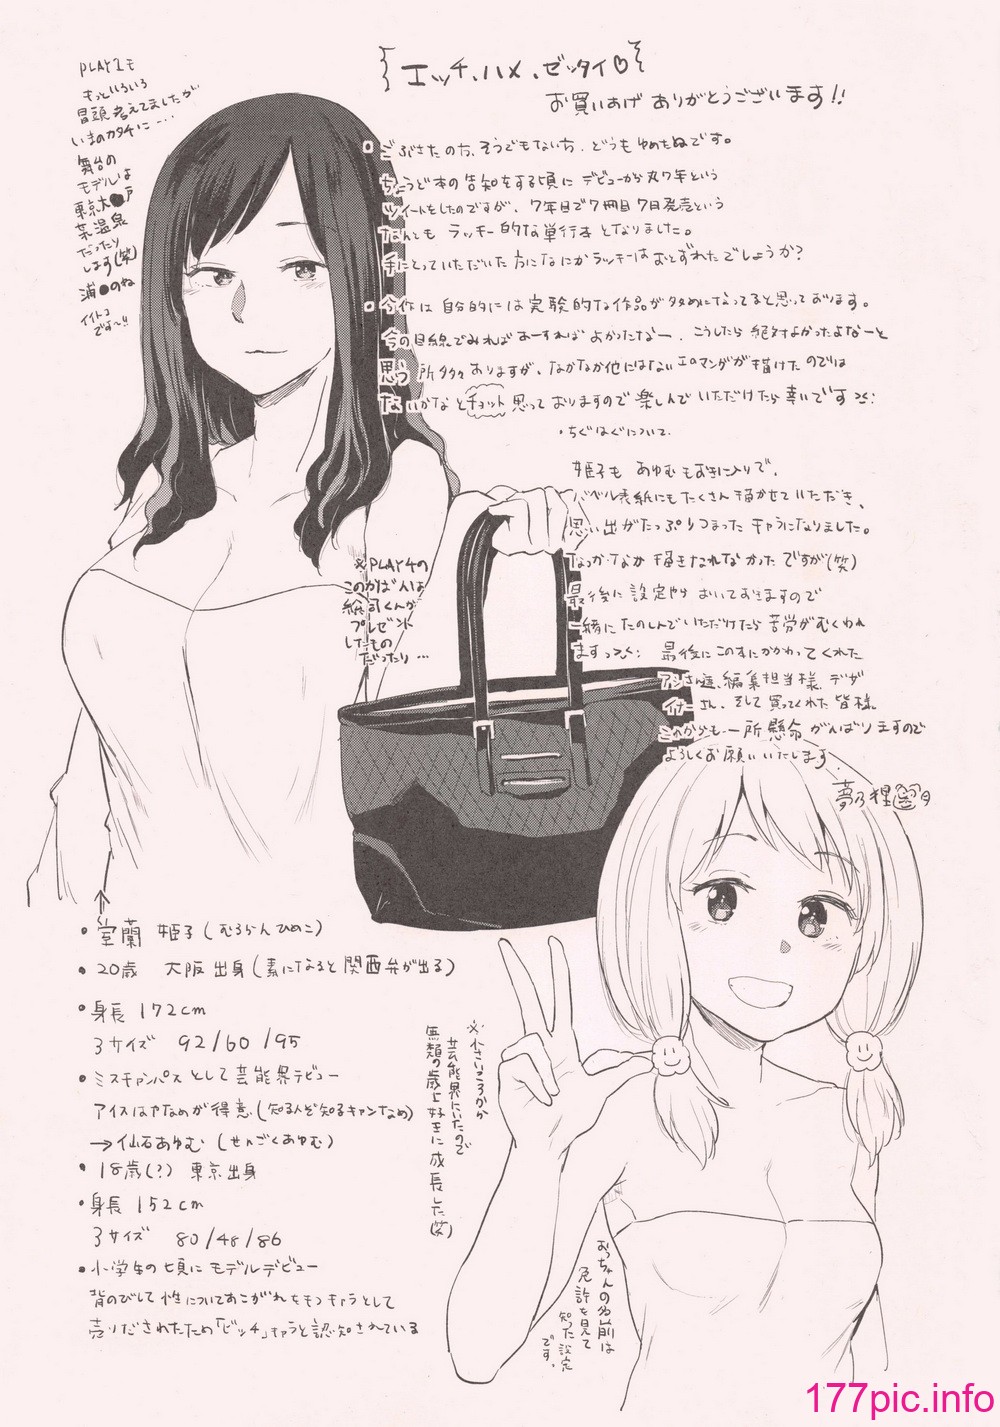 エッチ、ハメ、ゼッタイ♡
お買いあげ ありがとうございます!!
PLAY1も
もっといろいろ
冒頭考えてましたが
いまのカタチに…
舞台の
モデルは
東京大●戸
温泉
だったり
します(笑)
浦●のね
イイトコ
です〜!!
ごぶさたの方、そうでもない方、どうもゆめもぬです。
ちょうど本の告知をする頃に デビューから丸7年という
ツイートをしたのですが、7年目で7冊目7日発売という
なんとも ラッキー的な単行本となりました。
手にとっていただいた方になにかラッキーはおとずれたでしょうか?
今作は 自分的には実験的な作品が多めになってると思っております。
今の目線でみればあーすれば よかったなー、こうしたら絶対よかったよなーと
思う 所多々ありますが、なかなか他にはないエロマンガが描けたのでは
ないかなとチョット思っておりますので楽しんでいただけたら幸いです
・ちぐはぐについて.
姫子も あゆむもお気に入りで、
バベル表紙にもたくさん描かせていただき、
思い出がたっぷりつまったキャラになりました。
なっかなか描きなれなかったですが(笑)
最後に設定やら おいておきますので
一緒にたのしんでいただけたら苦労がむくわれ
ます 最後にこの本にかかわってくれた
アシさん達、編集担当様、デザ
イナーさん、そして買ってくれた皆様、
これからも一所懸命がんばりますので
よろしくお願いいたします
夢乃狸
※PLAY4の
このかばんは
総司くんが
プレゼント
したもの
だったり…
・室蘭 姫子(むろらんひめこ)
・20歳 大阪出身(素になると関西弁が出る)
・身長 172cm
3サイズ 92/60/95
・ミスキャンパスとして芸能界デビュー
アイスはナなめが得意(知る人ぞ知るキャンなめ)
→仙石あゆむ(せんごくあゆむ)
・18歳(?) 東京出身
・身長 152cm
3サイズ 80/48/86
・小学生の頃にモデルデビュー
背のびして性についてあこがれをもつキャラとして
売りだされたため「ビッチ」キャラと認知されている
※小さいころから
芸能界にいたので
無類の歳上好きに成長した(笑)
おっちゃんの名前は
免許を見て
知った設定
です。
177pic.info